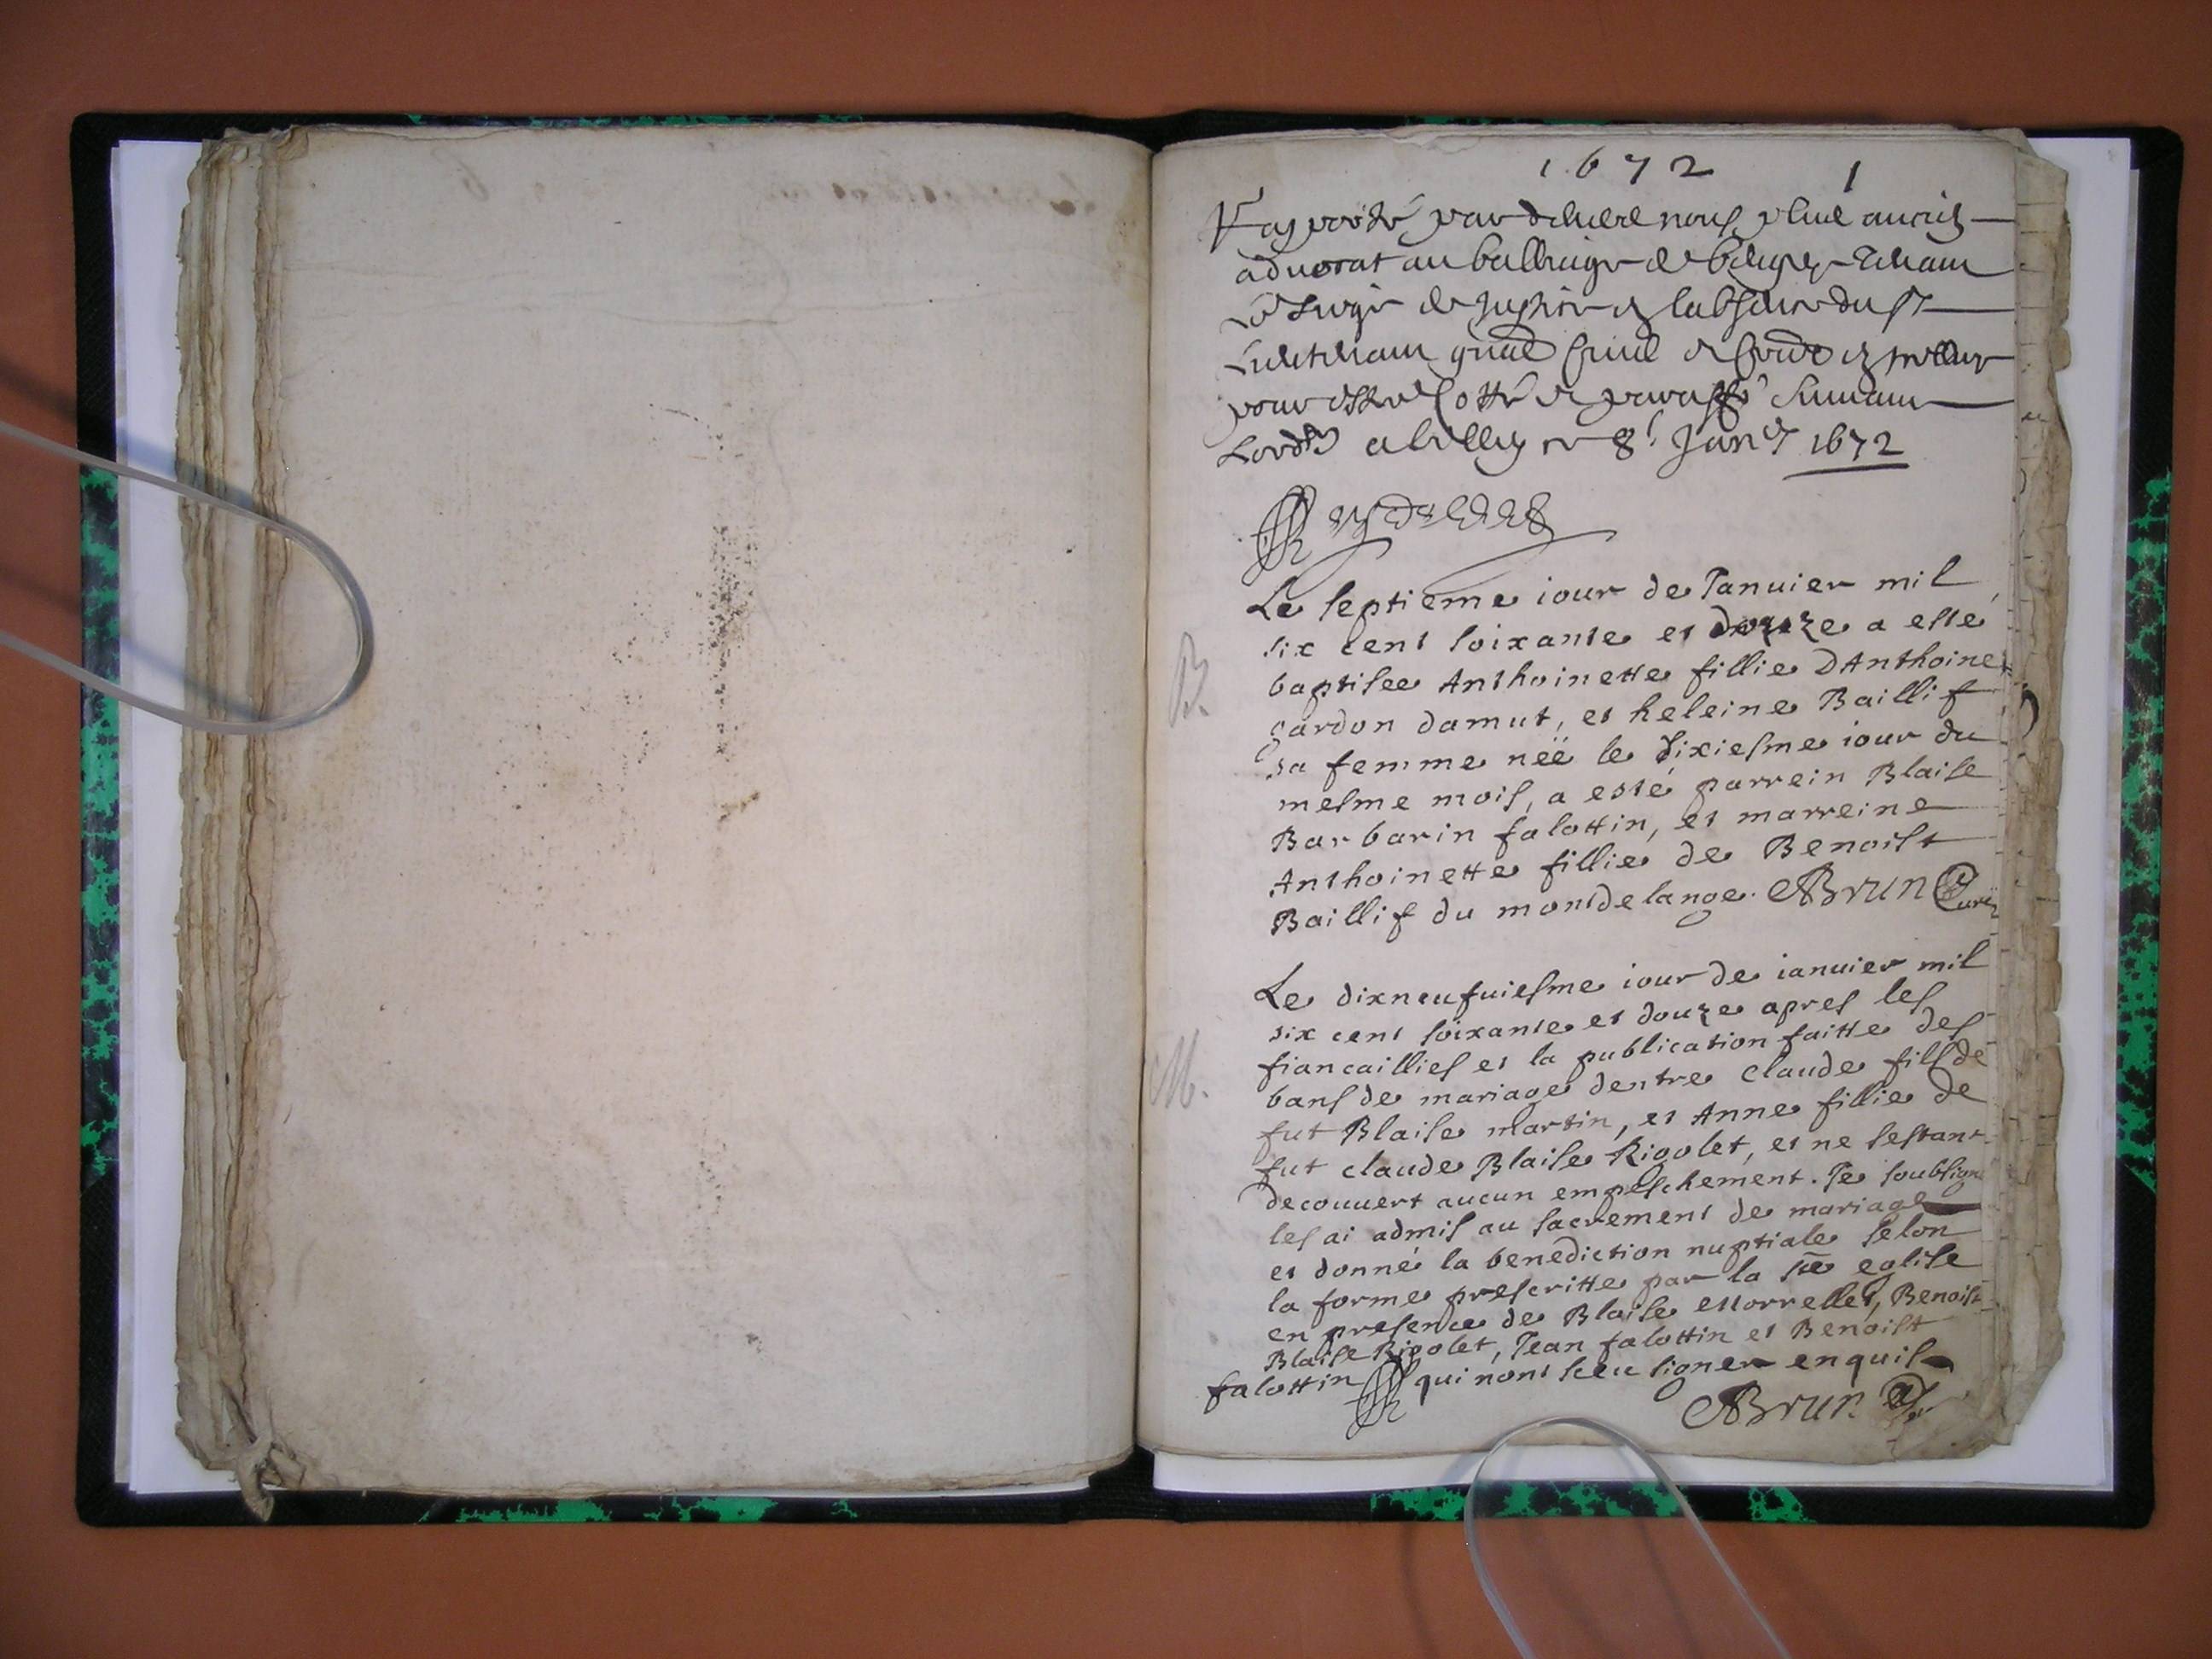 1672 1
Rapporté par devant nous plus ancien
advocat au balliage de
de Justice en labsence du sr
Lieutenant
pour estre cotté et paraffé suivant
Lord. a ce 8e Janer 1672
B.
Le septieme iour de Ianuier mil
six cent soixante et douze a esté
baptisee Anthoinette fillie dAnthoine
gardon damut, et heleine Baillif
sa femme neë le sixiesme iour du
mesme mois, a esté parrein Blaise
Barbarin falottin, et marreine
Anthoinette fillie de Benoist
Baillif du montdelange. ABrun Curé
M.
Le dixneufuiesme iour de ianuier mil
six cent soixante et douze apres les
fiancaillies et la publication faitte des
bans de mariage dentre claude fils de
fut Blaise martin, et Anne fillie de
fut claude Blaise Rigolet, et ne sestant
decouuert aucun empeschement. Ie soubsigné
les ai admis au sacrement de mariage
et donné la benediction nuptiale selon
la forme prescritte par la ste eglise
en presence de Blaise Morrellet, Benoist
Blaise Rigolet, Iean falottin et Benoist
falottin qui nont sceu signer enquis
ABrun